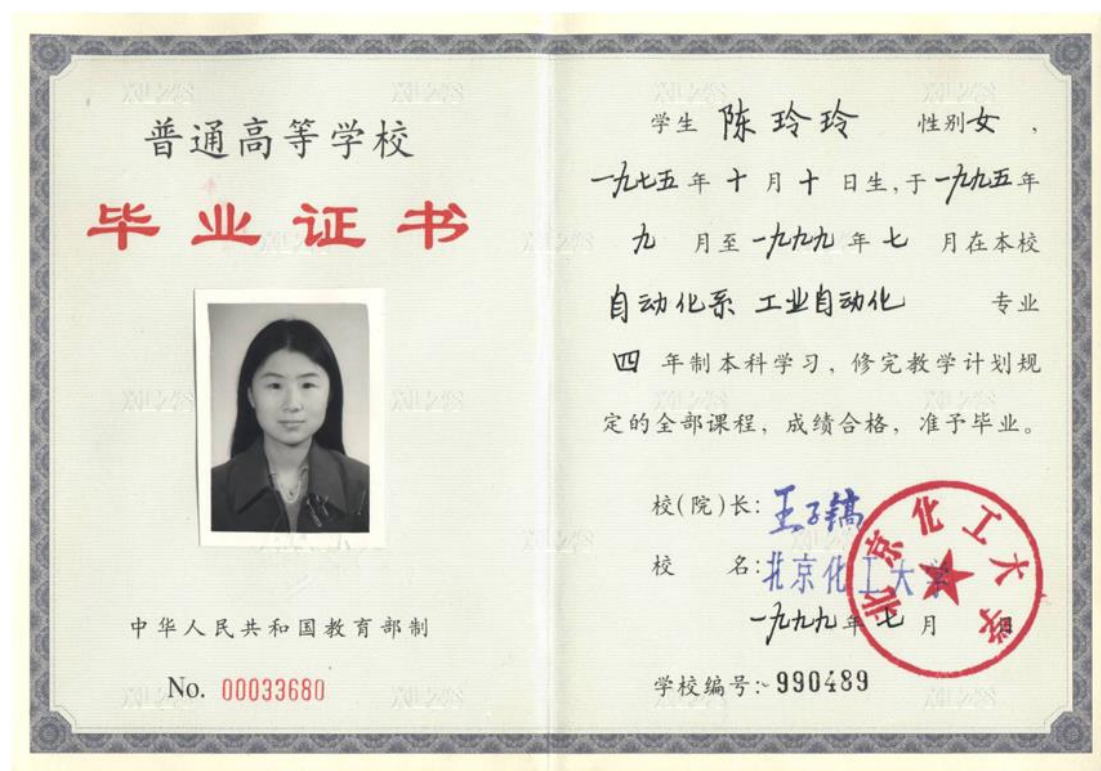 普通高等学校
毕业证书
中华人民共和国教育部制
No. 00033680
学生 陈玲玲 性别女，
一九七五年十月十日生,于一九九五年
九月至一九九九年七月在本校
自动化系 工业自动化 专业
四年制本科学习，修完教学计划规
定的全部课程，成绩合格，准予毕业。
校(院)长: 王子镐
校 名: 北京化工大学
北京化工大学
一九九九年七月 日
学校编号: 990489